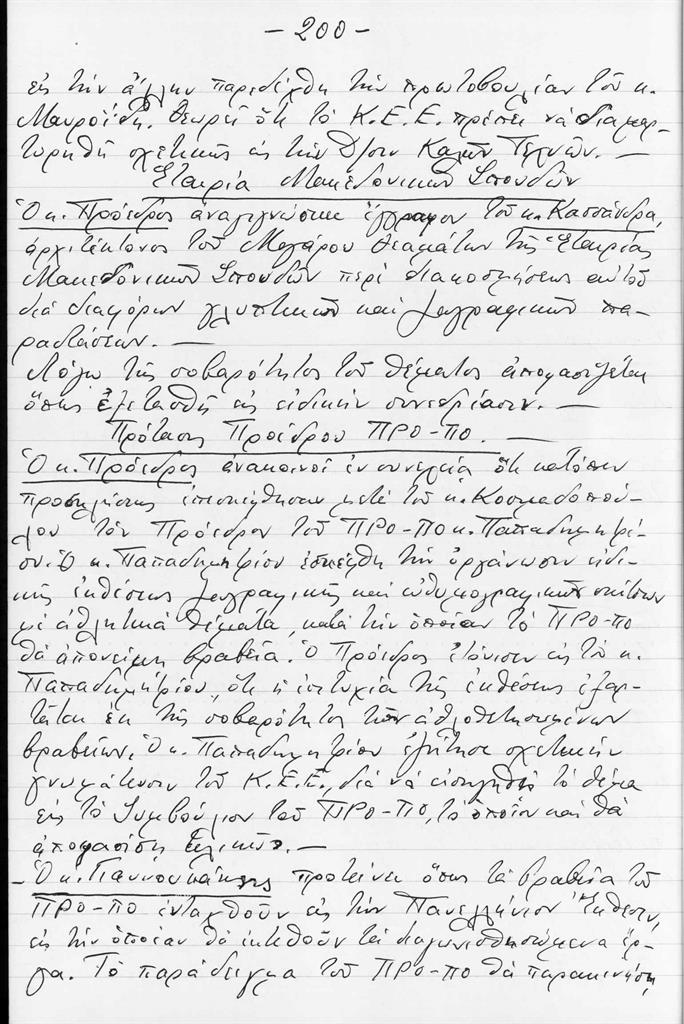 - 200 -
εἰς τὴν ἄλλην παρεδέχθη τὴν πρωτοβουλίαν τοῦ κ.
Μαυροΐδη. Θεωρεῖ ὅτι τὸ Κ.Ε.Ε. πρέπει νὰ διαμαρ-
τυρηθῇ σχετικῶς εἰς τὴν Δ/σιν Καλῶν Τεχνῶν. —
Ἑταιρία Μακεδονικῶν Σπουδῶν
Ὁ κ. Πρόεδρος ἀναγιγνώσκει ἔγγραφον τοῦ κ. Κασσάνδρα,
ἀρχιτέκτονος τοῦ Μεγάρου Θεαμάτων τῆς Ἑταιρίας
Μακεδονικῶν Σπουδῶν περὶ διακοσμήσεως αὐτοῦ
διὰ διαφόρων γλυπτικῶν καὶ ζωγραφικῶν πα-
ραστάσεων. —
Λόγω τῆς σοβαρότητος τοῦ θέματος ἀποφασίζεται
ὅπως ἐξετασθῇ εἰς εἰδικὴν συνεδρίασιν. —
Πρότασις Προέδρου ΠΡΟ-ΠΟ. —
Ὁ κ. Πρόεδρος ἀνακοινοῖ ἐν συνεχείᾳ ὅτι κατόπιν
προσκλήσεως ἐπεσκέφθησαν μετὰ τοῦ κ. Κοσμαδοπού-
λου τὸν Πρόεδρον τοῦ ΠΡΟ-ΠΟ κ. Παπαδημητρί-
ου. Ὁ κ. Παπαδημητρίου ἐσκέφθη τὴν ὀργάνωσιν εἰδι-
κῆς ἐκθέσεως ζωγραφικῆς καὶ εὐθυμογραφικῶν σκίτσων
μὲ ἀθλητικὰ θέματα, κατὰ τὴν ὁποίαν τὸ ΠΡΟ-ΠΟ
θὰ ἀπονείμῃ βραβεῖα. Ὁ Πρόεδρος ἐτόνισεν εἰς τὸν κ.
Παπαδημητρίου, ὅτι ἡ ἐπιτυχία τῆς ἐκθέσεως ἐξαρ-
τᾶται ἐκ τῆς σοβαρότητος τῶν ἀθλοθετησομένων
βραβείων. Ὁ κ. Παπαδημητρίου ἐζήτησε σχετικὴν
γνωμάτευσιν τοῦ Κ.Ε.Ε., διὰ νὰ εἰσηγηθῇ τὸ θέμα
εἰς τὸ Συμβούλιον τοῦ ΠΡΟ-ΠΟ, τὸ ὁποῖον καὶ θὰ
ἀποφασίσῃ τελικῶς. —
- Ὁ κ. Γιαννουκάκης προτείνει ὅπως τὰ βραβεῖα τοῦ
ΠΡΟ-ΠΟ ἐνταχθοῦν εἰς τὴν Πανελλήνιον Ἔκθεσιν,
εἰς τὴν ὁποίαν θὰ ἐκτεθοῦν τὰ διαγωνισθησόμενα ἔρ-
γα. Τὸ παράδειγμα τοῦ ΠΡΟ-ΠΟ θὰ παρακινήσῃ,